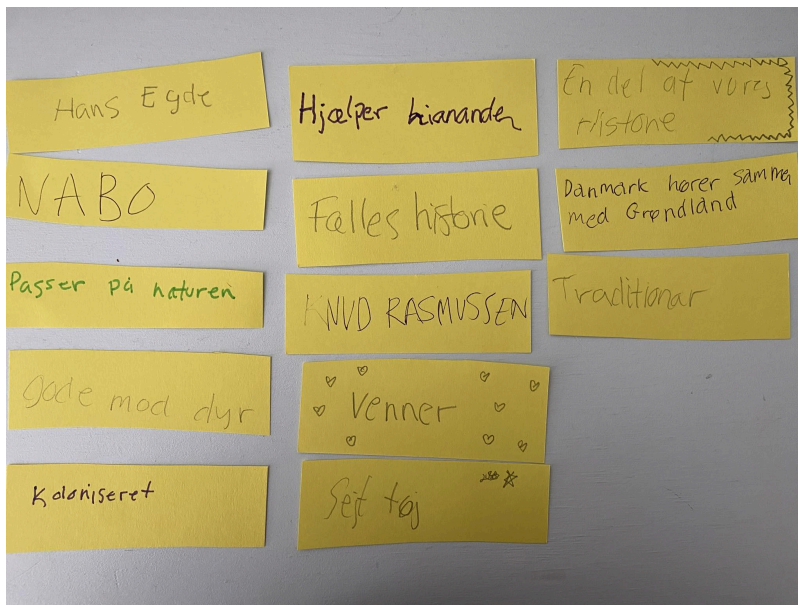 Hans Egde
NABO
Passer på naturen
Gode mod dyr
Koloniseret
Hjælper hinanden
Fælles historie
KNUD RASMUSSEN
Venner
Sejt tøj
En del af vores
Historie
Danmark hører sammen
med Grøndland
Traditionar